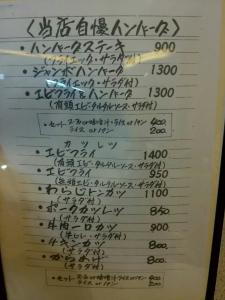 〈当店自慢ハンバーグ〉
・ハンバーグステーキ 900
(フライエッグ・サラダ付)
・ジャンボハンバーグ 1300
(フライエッグ・サラダ付)
・エビフライ&ハンバーグ 1300
(有頭エビ・タルタルソース・サラダ付)
・セット 味噌汁・ライス or パン 400
ライス or パン 200
カツレツ
・エビフライ 1400
(有頭エビ・タルタルソース・サラダ付)
・エビフライ 950
(エビ・タルタルソース・サラダ付)
・わらじトンカツ 1100
(サラダ付)
・ポークカツレツ 850
(サラダ付)
・牛肉一口カツ 900
(牛ヒレ・サラダ付)
・チキンカツ 800
(サラダ付)
・からあげ 800
(サラダ付)
・セット 味噌汁・ライス or パン 400
ライス or パン 200